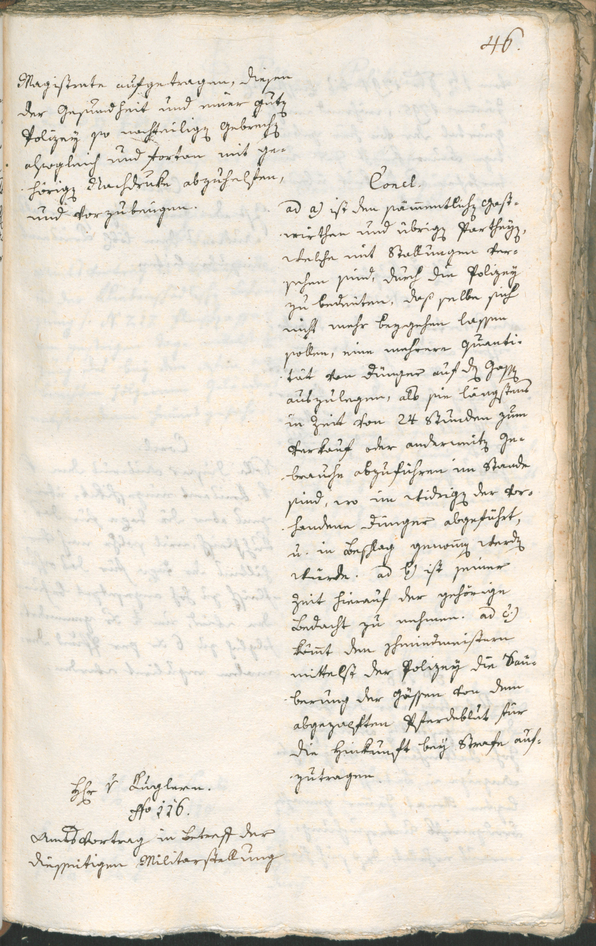 46.
Magistrate aufgetragen, diesen
der Gesundheit und einer gutt
Polizey so nachteilige Gebreche
alsogleich und fortan mit ge-
hörig Nachdruke abzuhelfen,
und vorzubeugen.
Concl.
ad a) ist den sämmentlich Gast-
wirthen und übrig Partheyen,
welche mit Stallungen ver-
sehen sind, durch die Polizey
zu bedeuten, daß selbe sich
nicht mehr beygehen lassen
sollen, eine mehrere Quanti-
tät von Dünger auf die Gasse
auszulegen, als sie längstens
in Zeit von 24 Stunden zum
Verkauf oder anderweitig Ge-
brauche abzuführen im Stande
sind, wo im widrig der vor-
handene Dünger abgeführt,
u. in Beschlag genommen werden
würde. ad b) ist seiner
Zeit hierauf der gehörige
Bedacht zu nehmen. ad c)
kömt den Schmiedmeistern
mittelst der Polizey die Säu-
berung der Gässen von dem
abgezapften Pferdeblut für
die Hinkunft bey Strafe auf-
zutragen
H: v Kuglern.
Nro 116.
Amts Vortrag in Betreff der
diesseitigen Militarstellung